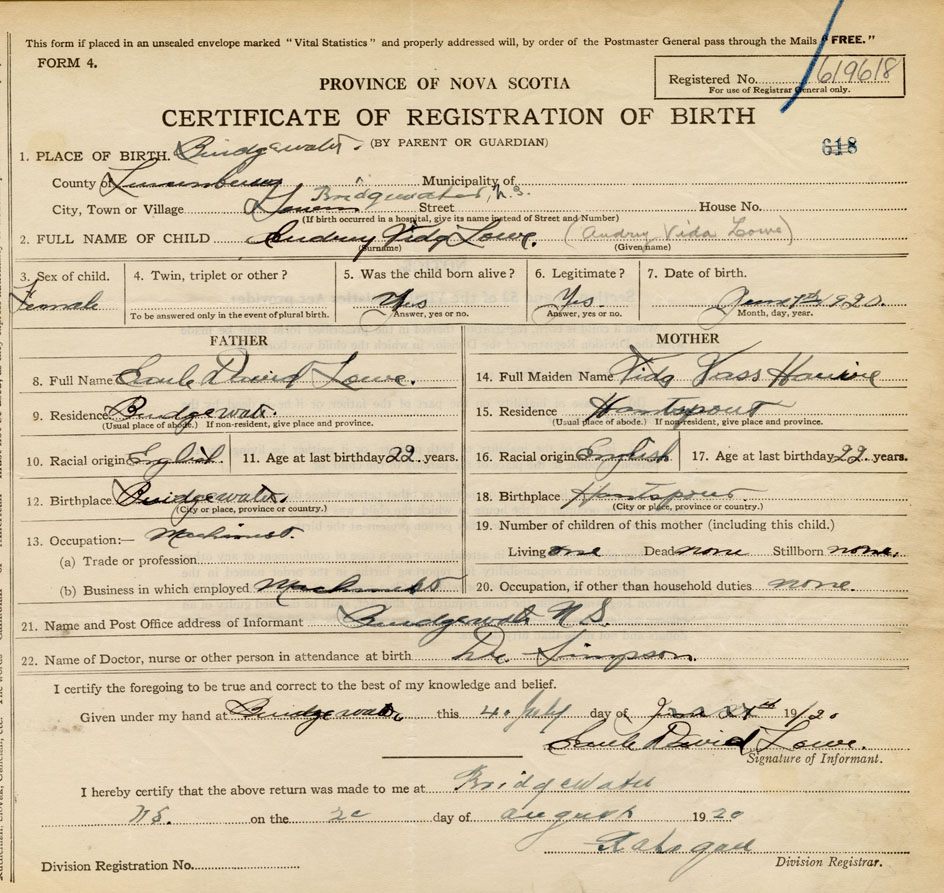 This form if placed in an unsealed envelope marked "Vital Statistics" and properly addressed will, by order of the Postmaster General pass through the Mails "FREE."
FORM 4.
Registered No. 619618
For use of Registrar General only.
PROVINCE OF NOVA SCOTIA
CERTIFICATE OF REGISTRATION OF BIRTH
(BY PARENT OR GUARDIAN)
618
1. PLACE OF BIRTH. Bridgewater.
County of Lunenburg Municipality of
Bridgewater, N.S.
City, Town or Village Street House No.
(If birth occurred in a hospital, give its name instead of Street and Number)
2. FULL NAME OF CHILD Audrey Vida Lowe. (Audry Vida Lowe)
(Surname) (Given name)
3. Sex of child. 4. Twin, triplet or other? 5. Was the child born alive? 6. Legitimate? 7. Date of birth.
Female Yes Yes 1920.
To be answered only in the event of plural birth. Answer, yes or no. Answer, yes or no. Month, day, year.
FATHER MOTHER
8. Full Name Earle David Lowe. 14. Full Maiden Name Vida Vass
9. Residence Bridgewater. 15. Residence Hantsport
(Usual place of abode.) If non-resident, give place and province. (Usual place of abode.) If non-resident, give place and province.
10. Racial origin English 11. Age at last birthday 22 years. 16. Racial origin English 17. Age at last birthday 22 years.
12. Birthplace Bridgewater. 18. Birthplace Hantsport.
(City or place, province or country.) (City or place, province or country.)
13. Occupation:— Machinist. 19. Number of children of this mother (including this child.)
(a) Trade or profession Living one Dead none Stillborn none.
(b) Business in which employed Machinist 20. Occupation, if other than household duties none.
21. Name and Post Office address of Informant Bridgewater N.S.
22. Name of Doctor, nurse or other person in attendance at birth Dr Simpson.
I certify the foregoing to be true and correct to the best of my knowledge and belief.
Given under my hand at Bridgewater this 4. July day of 19/20
Earle David Lowe.
Signature of Informant.
I hereby certify that the above return was made to me at Bridgewater
N.S. on the day of august 1920
Division Registration No. Division Registrar.